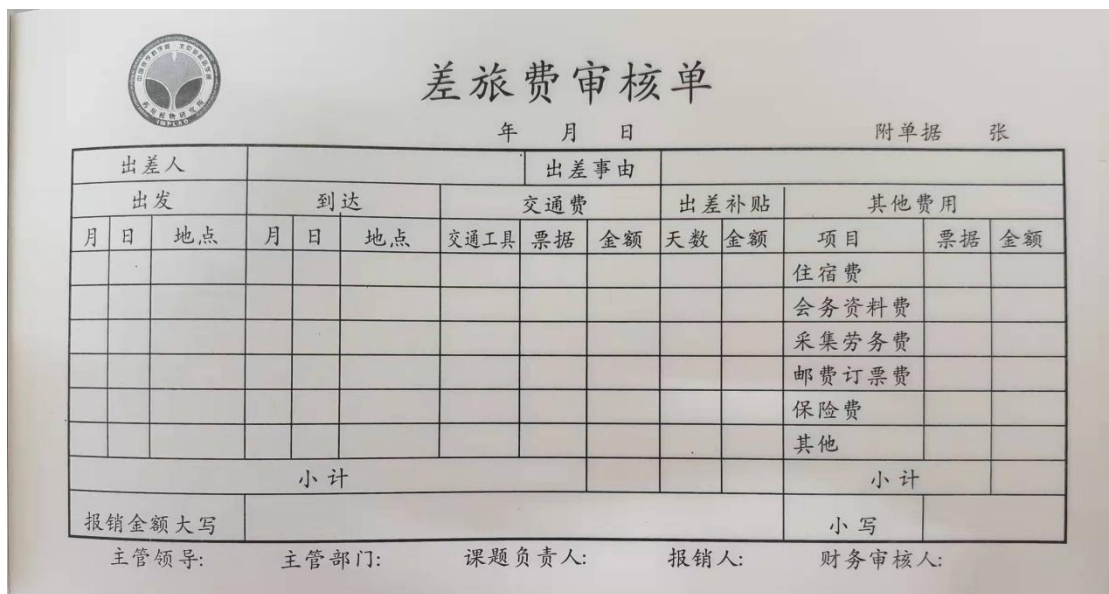 中国医学科学院·北京协和医学院
药用植物研究所
IMPLAD
差旅费审核单
年 月 日 附单据 张
出差人 出差事由
出发 到达 交通费 出差补贴 其他费用
月 日 地点 月 日 地点 交通工具 票据 金额 天数 金额 项目 票据 金额
住宿费
会务资料费
采集劳务费
邮费订票费
保险费
其他
小计 小计
报销金额大写 小写
主管领导: 主管部门: 课题负责人: 报销人: 财务审核人: